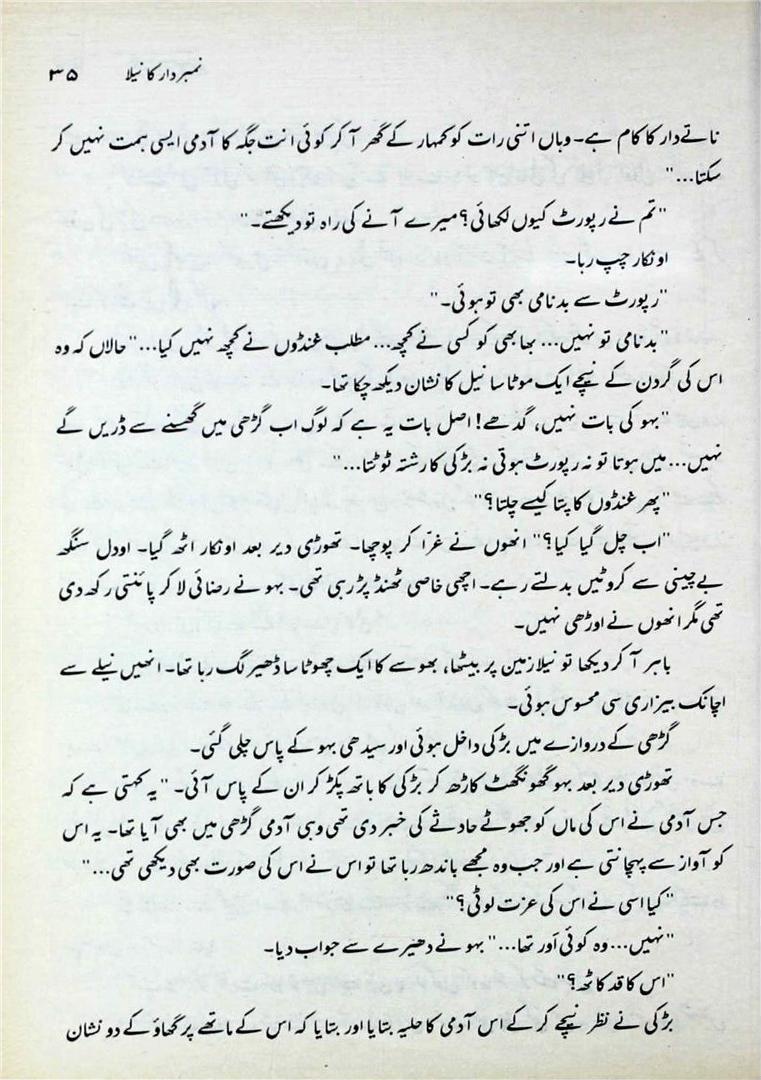 نمبردار کا نیلا ۳۵
ناتے دار کا کام ہے۔ وہاں اتنی رات کو کمہار کے گھر آ کر کوئی انت جگہ کا آدمی ایسی ہمت نہیں کر
سکتا..."
"تم نے رپورٹ کیوں لکھائی؟ میرے آنے کی راہ تو دیکھتے۔"
اونکار چپ رہا۔
"رپورٹ سے بدنامی بھی تو ہوئی۔"
"بدنامی تو نہیں... بھابھی کو کسی نے کچھ... مطلب غنڈوں نے کچھ نہیں کیا..." حالاں کہ وہ
اس کی گردن کے نیچے ایک موٹا سا نیل کا نشان دیکھ چکا تھا۔
"بہو کی بات نہیں، گدھے! اصل بات یہ ہے کہ لوگ اب گڑھی میں گھسنے سے ڈریں گے
نہیں... میں ہوتا تو نہ رپورٹ ہوتی نہ بڑکی کا رشتہ ٹوٹتا..."
"پھر غنڈوں کا پتا کیسے چلتا؟"
"اب چل گیا کیا؟" انھوں نے غرّا کر پوچھا۔ تھوڑی دیر بعد اونکار اٹھ گیا۔ اودل سنگھ
بے چینی سے کروٹیں بدلتے رہے۔ اچھی خاصی ٹھنڈ پڑ رہی تھی۔ بہو نے رضائی لا کر پائنتی رکھ دی
تھی مگر انھوں نے اوڑھی نہیں۔
باہر آ کر دیکھا تو نیلا زمین پر بیٹھا، بھوسے کا ایک چھوٹا سا ڈھیر لگ رہا تھا۔ انھیں نیلے سے
اچانک بیزاری سی محسوس ہوئی۔
گڑھی کے دروازے میں بڑکی داخل ہوئی اور سیدھی بہو کے پاس چلی گئی۔
تھوڑی دیر بعد بہو گھونگھٹ کاڑھ کر بڑکی کا ہاتھ پکڑ کر ان کے پاس آئی۔ "یہ کہتی ہے کہ
جس آدمی نے اس کی ماں کو جھوٹے حادثے کی خبر دی تھی وہی آدمی گڑھی میں بھی آیا تھا۔ یہ اس
کو آواز سے پہچانتی ہے اور جب وہ مجھے باندھ رہا تھا تو اس نے اس کی صورت بھی دیکھی تھی..."
"کیا اسی نے اس کی عزت لوٹی؟"
"نہیں... وہ کوئی اَور تھا..." بہو نے دھیرے سے جواب دیا۔
"اس کا قد کاٹھ؟"
بڑکی نے نظر نیچے کر کے اس آدمی کا حلیہ بتایا اور بتایا کہ اس کے ماتھے پر گھاؤ کے دو نشان